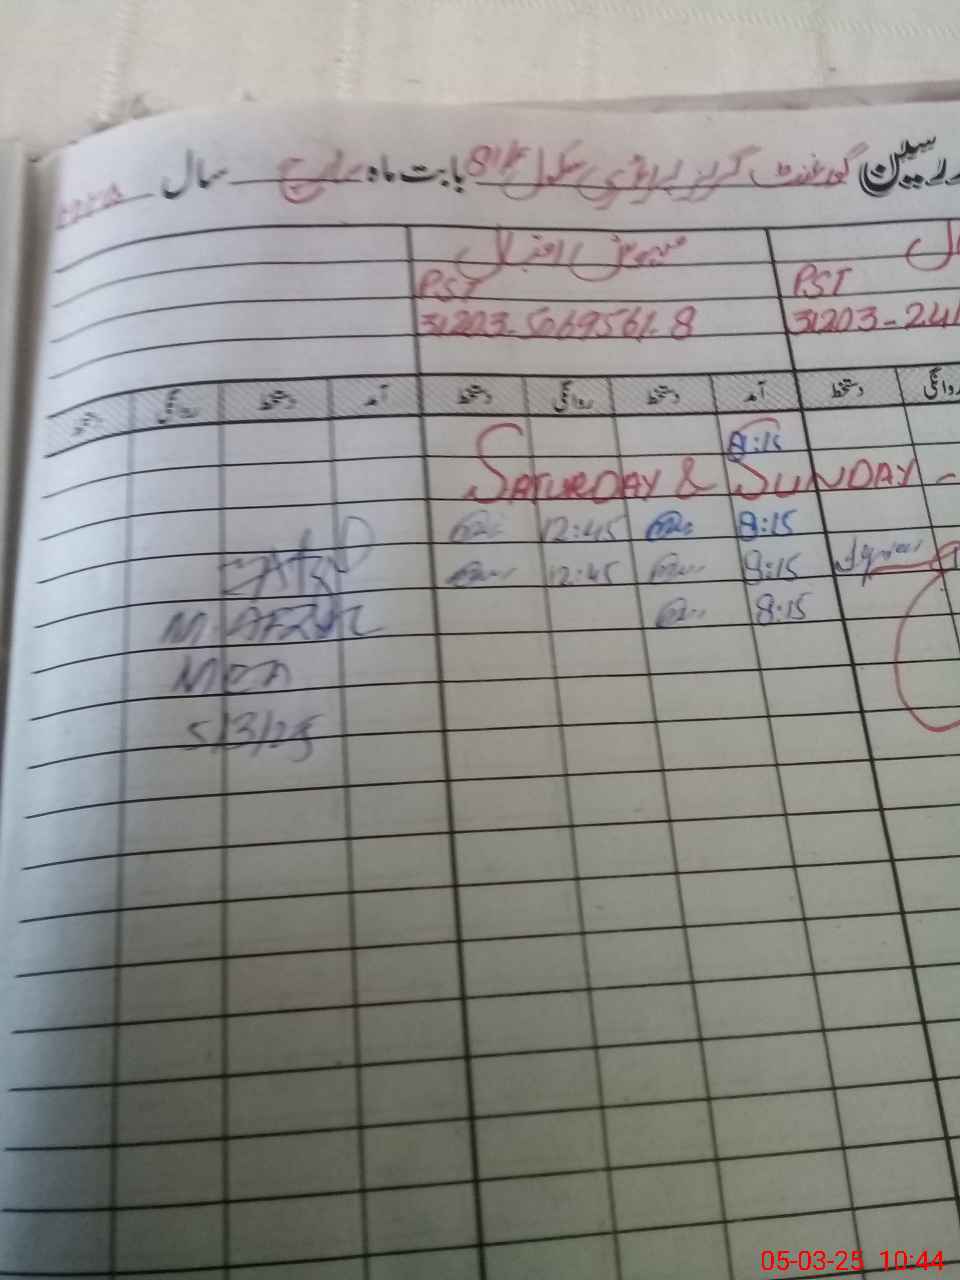 رسین گورنمنٹ گرلز پرائمری سکول 81/F بابت ماہ مارچ سال ۲۰۲۵
مہوش اقبال
PST PST
31203-5069561-8 31203-241
روانگی دستخط آمد دستخط روانگی دستخط آمد دستخط روانگی دستخط
8:15
SATURDAY & SUNDAY -
8:15 12:45
8:15 12:45
8:15
M. AFZAL
5/3/25
05-03-25 10:44